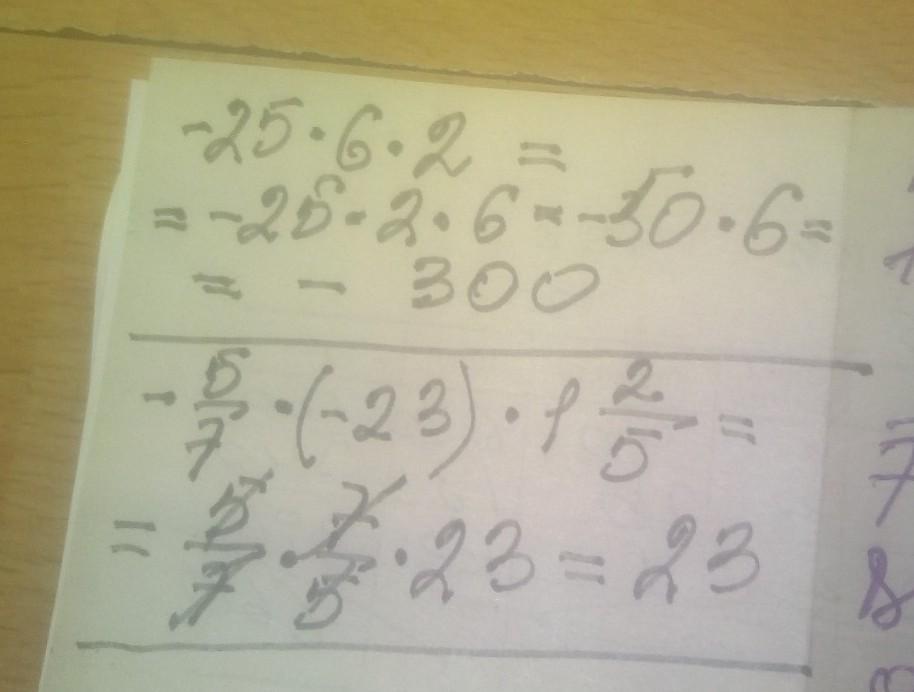 -25·6·2 =
= -25·2·6 = -50·6 =
= - 300
- 5/7 · (-23) · 1 2/5 =
= 5/7 · 7/5 · 23 = 23